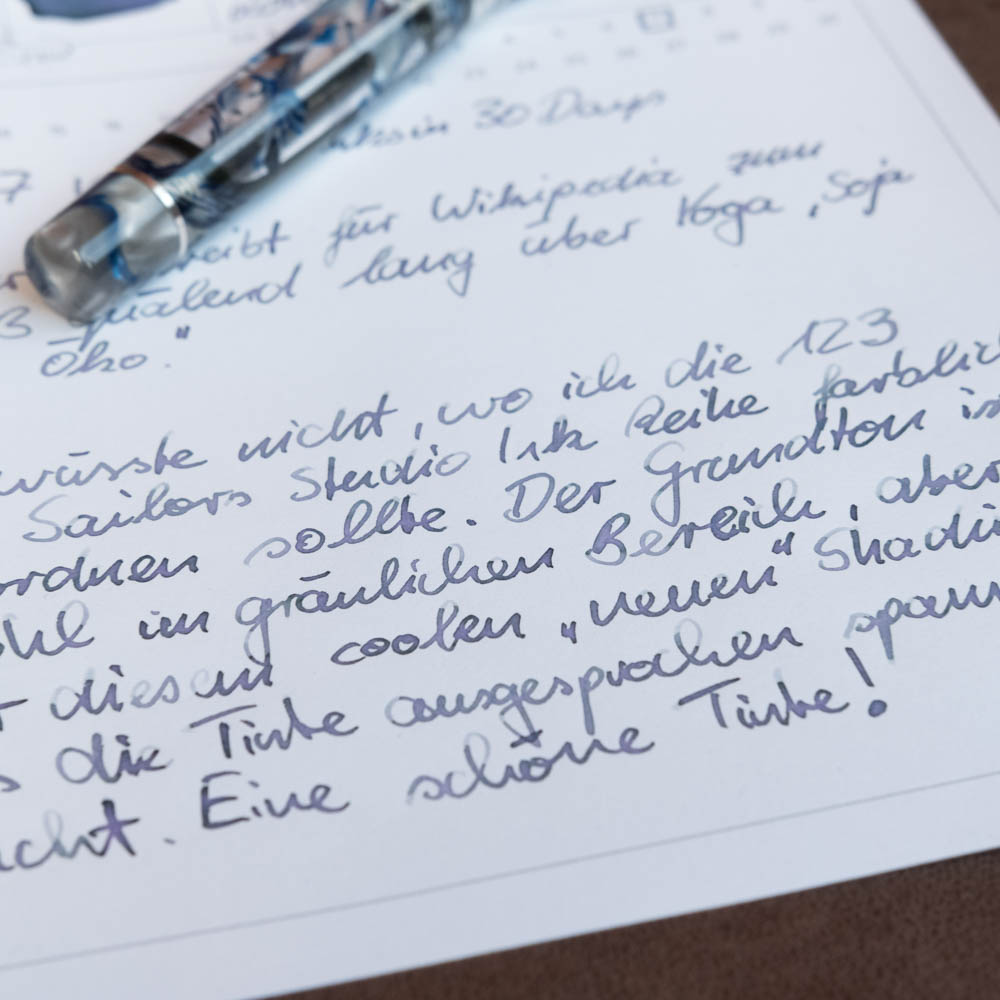 30 Days
7
für Wikipedia zum
3 quälend lang über Yoga, Soja
Öko."
wüsste nicht, wo ich die 123
Sailors Studio Ink Reihe farblich
ordnen sollte. Der Grundton is
hl im gräulichen Bereich, aber
diesem coolen „neuen" Shadi
die Tinte ausgesprochen spann
cht. Eine schöne Tinte!